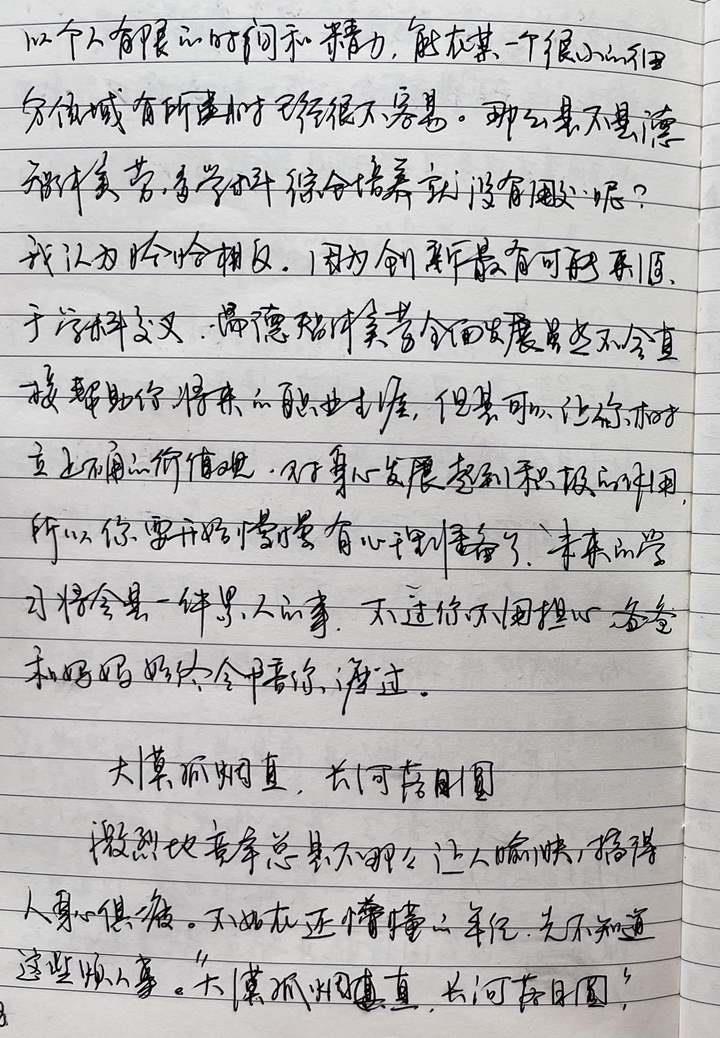 以个人有限的时间和精力，能在某一个很小的细
分领域有所建树已经很不容易。那么是不是德
智体美劳，多学科综合培养就没有用处呢？
我认为恰恰相反。因为创新最有可能来源
于学科交叉，德智体美劳全面发展虽然不会直
接帮助你将来的职业生涯，但是可以让你树
立正确的价值观，对身心发展起到积极的作用，
所以你要开始慢慢有心理准备了，未来的学
习将会是一件累人的事，不过你不用担心，爸爸
和妈妈始终会陪着你渡过。
大漠孤烟直，长河落日圆
激烈地竞争总是不那么让人愉快，搞得
人身心俱疲。不如在还懵懂的年纪，先不知道
这些烦人事。“大漠孤烟直，长河落日圆”